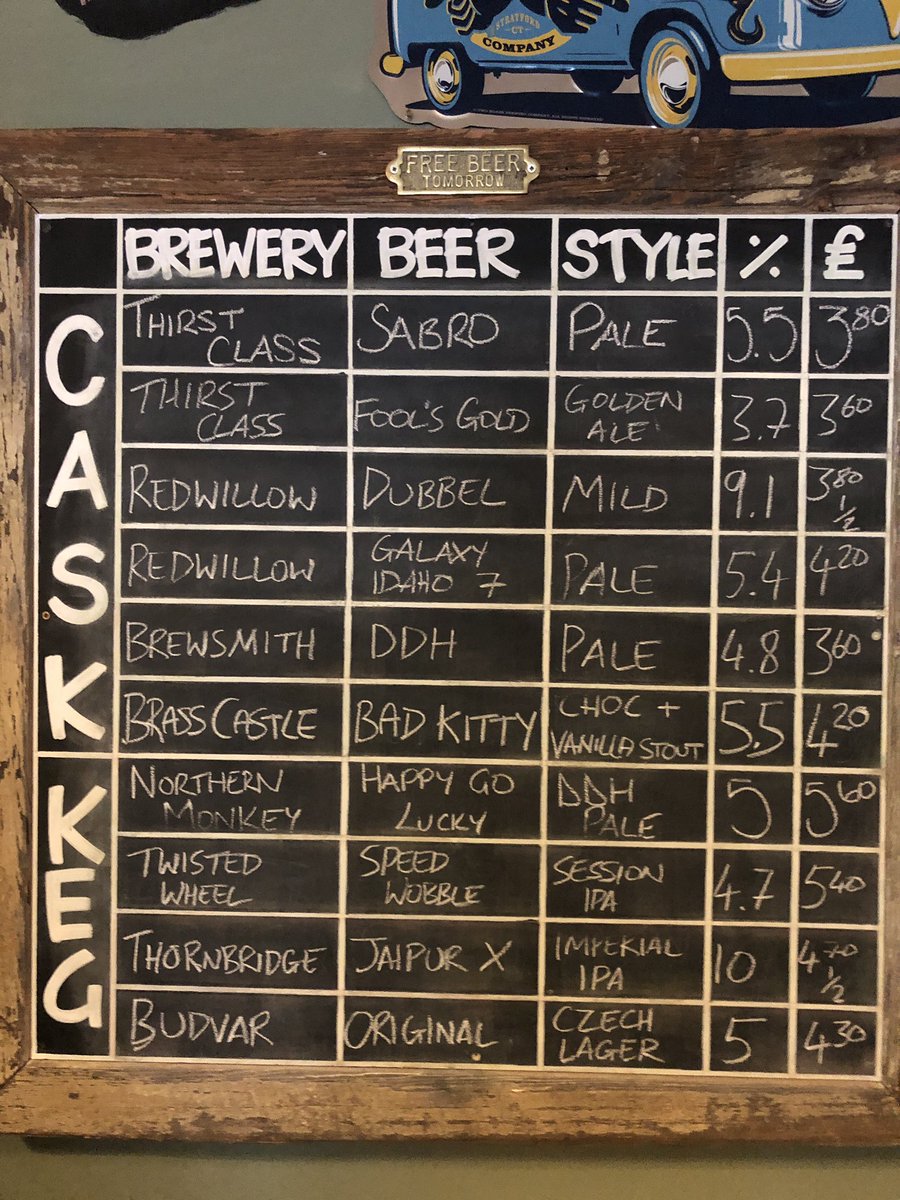 STRATFORD
CT
COMPANY
FREE BEER
TOMORROW
BREWERY BEER STYLE % £
CASK
THIRST CLASS SABRO PALE 5.5 3.80
THIRST CLASS FOOL'S GOLD GOLDEN ALE 3.7 3.60
REDWILLOW DUBBEL MILD 9.1 3.80 1/2
REDWILLOW GALAXY IDAHO 7 PALE 5.4 4.20
BREWSMITH DDH PALE 4.8 3.60
BRASS CASTLE BAD KITTY CHOC + VANILLA STOUT 5.5 4.20
KEG
NORTHERN MONKEY HAPPY GO LUCKY DDH PALE 5 5.60
TWISTED WHEEL SPEED WOBBLE SESSION IPA 4.7 5.40
THORNBRIDGE JAIPUR X IMPERIAL IPA 10 4.70 1/2
BUDVAR ORIGINAL CZECH LAGER 5 4.30